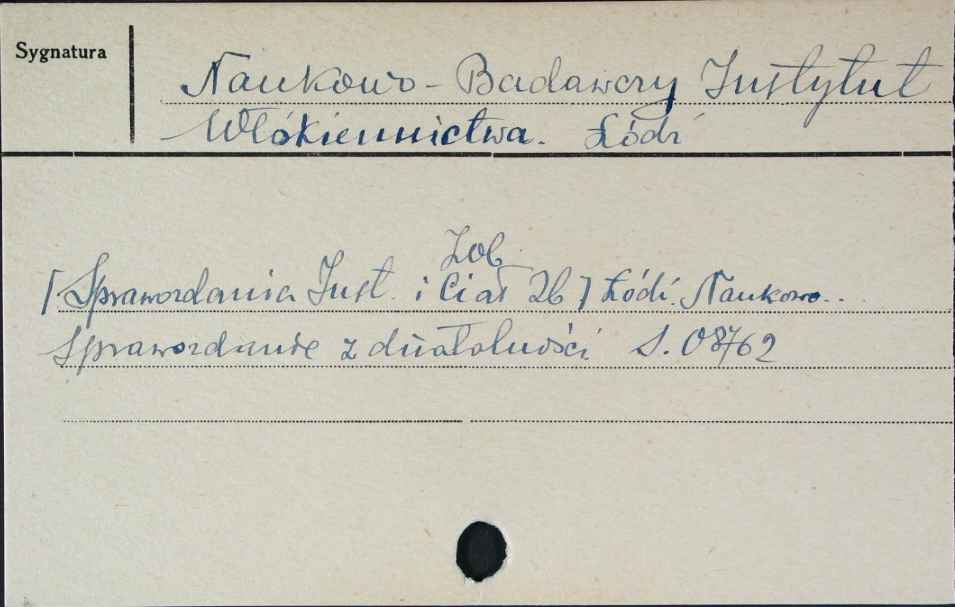 Sygnatura
Naukowo-Badawczy Instytut
Włókiennictwa. Łódź
Zob.
[Sprawozdania Inst. i Ciał Zb] Łódź. Naukowo..
Sprawozdanie z działalności S. 08762